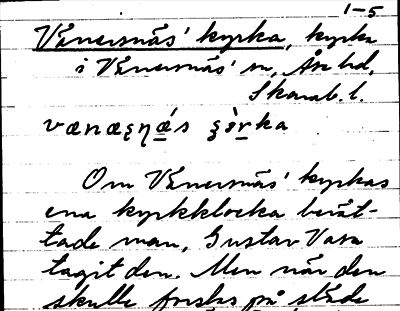 1-5
Vänersnäs' kyrka, kyrka
i Vänersnäs' sn, Åse hd,
Skarab. l.
Om Vänersnäs' kyrkas
ena kyrkklocka berät-
tade man, Gustav Vasa
tagit den. Men när den
skulle forslas på släde